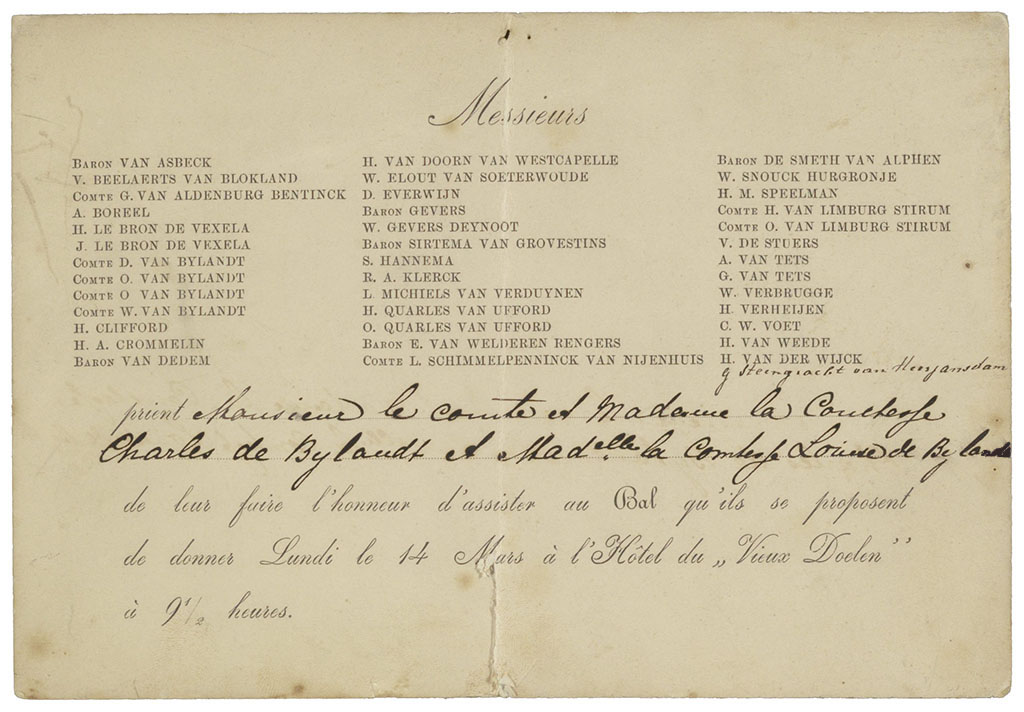 Messieurs
Baron VAN ASBECK
V. BEELAERTS VAN BLOKLAND
Comte G. VAN ALDENBURG BENTINCK
A. BOREEL
H. LE BRON DE VEXELA
J. LE BRON DE VEXELA
Comte D. VAN BYLANDT
Comte O. VAN BYLANDT
Comte O VAN BYLANDT
Comte W. VAN BYLANDT
H. CLIFFORD
H. A. CROMMELIN
Baron VAN DEDEM
H. VAN DOORN VAN WESTCAPELLE
W. ELOUT VAN SOETERWOUDE
D. EVERWIJN
Baron GEVERS
W. GEVERS DEYNOOT
Baron SIRTEMA VAN GROVESTINS
S. HANNEMA
R. A. KLERCK
L. MICHIELS VAN VERDUYNEN
H. QUARLES VAN UFFORD
O. QUARLES VAN UFFORD
Baron E. VAN WELDEREN RENGERS
Comte L. SCHIMMELPENNINCK VAN NIJENHUIS
Baron DE SMETH VAN ALPHEN
W. SNOUCK HURGRONJE
H. M. SPEELMAN
Comte H. VAN LIMBURG STIRUM
Comte O. VAN LIMBURG STIRUM
V. DE STUERS
A. VAN TETS
G. VAN TETS
W. VERBRUGGE
H. VERHEIJEN
C. W. VOET
H. VAN WEEDE
H. VAN DER WIJCK
Steengracht van Moyjansdam
prient Monsieur le comte et Madame la Comtesse
Charles de Bylandt et Madelle la Comtesse Louise de Bylandt
de leur faire l'honneur d'assister au Bal qu'ils se proposent
de donner Lundi le 14 Mars à l'Hôtel du „Vieux Doelen”
à 9 1/2 heures.